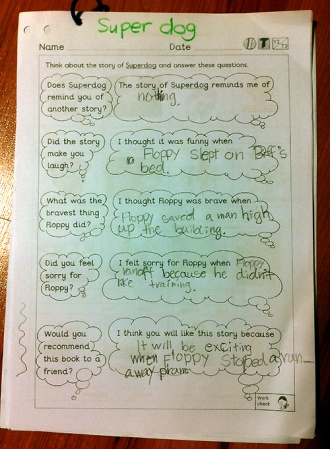 Super dog
Name Date
Think about the story of Superdog and answer these questions.
Does Superdog
remind you of
another story?
The story of Superdog reminds me of
nothing.
Did the story
make you
laugh?
I thought it was funny when
Floppy slept on
bed.
What was the
bravest thing
Floppy did?
I thought Floppy was brave when
Floppy saved a man high
up the building.
Did you feel
sorry for
Floppy?
I felt sorry for Floppy when Floppy
because he didn't
like training.
Would you
recommend
this book to a
friend?
I think you will like this story because
It will be exciting
when Floppy stopped a run
away
Work
check